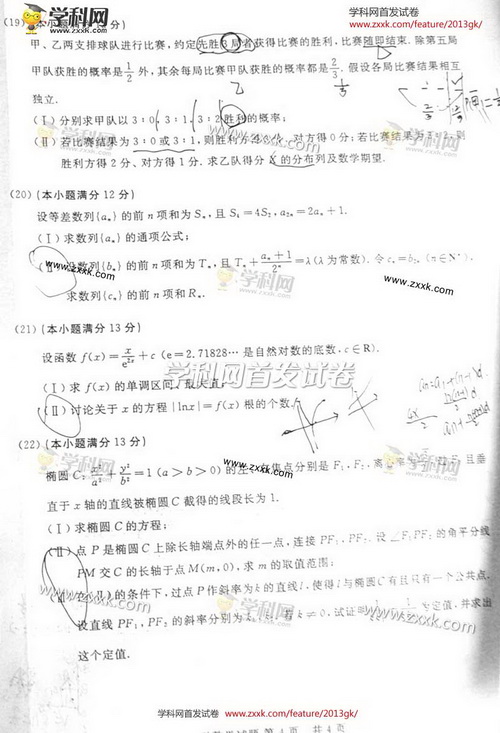 学科网首发试卷
www.zxxk.com/feature/2013gk/
学科网
www.zxxk.com
(19)(本小题满分12分)
甲、乙两支排球队进行比赛，约定先胜3局者获得比赛的胜利，比赛随即结束. 除第五局
甲队获胜的概率是1/2外，其余每局比赛甲队获胜的概率都是2/3. 假设各局比赛结果相互
独立.
(Ⅰ)分别求甲队以3∶0，3∶1，3∶2胜利的概率；
(Ⅱ)若比赛结果为3∶0或3∶1，则胜利方得3分、对方得0分；若比赛结果为3∶2，则
胜利方得2分、对方得1分. 求乙队得分X的分布列及数学期望.
学科网
www.zxxk.com
(20)(本小题满分12分)
设等差数列{aₙ}的前n项和为Sₙ，且S₄=4S₂，a₂ₙ=2aₙ+1.
(Ⅰ)求数列{aₙ}的通项公式；
(Ⅱ)设数列{bₙ}的前n项和为Tₙ，且Tₙ+(aₙ+1)/2ⁿ=λ(λ为常数). 令cₙ=b₂ₙ (n∈N*)，
求数列{cₙ}的前n项和Rₙ.
学科网
www.zxxk.com
www.zxxk.com
(21)(本小题满分13分)
设函数f(x)=x/e²ˣ+c (e=2.71828…是自然对数的底数，c∈R).
学科网首发试卷
(Ⅰ)求f(x)的单调区间、最大值；
(Ⅱ)讨论关于x的方程|lnx|=f(x)根的个数.
www.zxxk.com
(22)(本小题满分13分)
学科网
www.zxxk.com
椭圆C：x²/a²+y²/b²=1(a>b>0)的左、右焦点分别是F₁、F₂，离心率为 且垂
直于x轴的直线被椭圆C截得的线段长为1.
(Ⅰ)求椭圆C的方程；
(Ⅱ)点P是椭圆C上除长轴端点外的任一点，连接PF₁、PF₂. 设∠F₁PF₂的角平分线
PM交C的长轴于点M(m,0)，求m的取值范围；
(Ⅲ)在(Ⅱ)的条件下，过点P作斜率为k的直线l，使得l与椭圆C有且只有一个公共点.
设直线PF₁，PF₂的斜率分别为k₁，k₂，若k≠0，试证明 为定值，并求出
这个定值.
学科网
www.zxxk.com
学科网首发试卷
www.zxxk.com/feature/2013gk/
试题 第4页 共4页